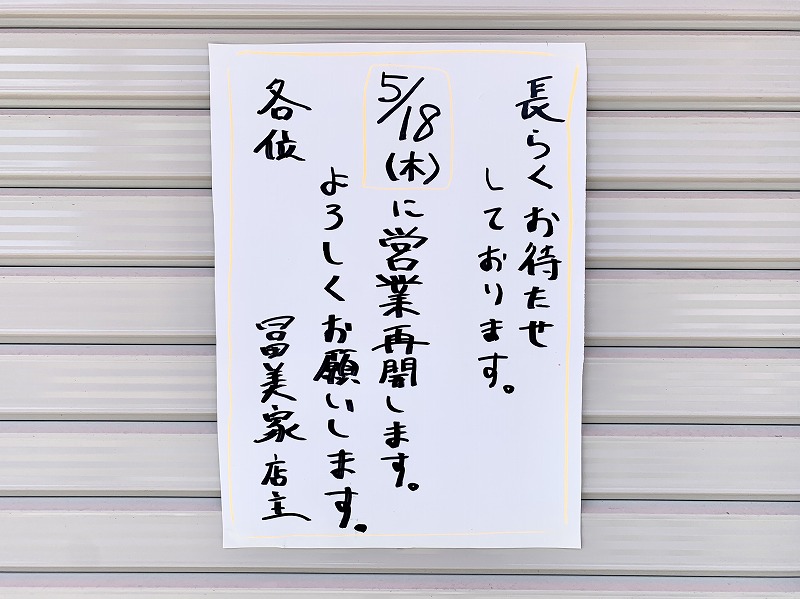 長らくお待たせ
しております。
5/18(木)に営業再開します。
よろしくお願いします。
各位
冨美家 店主